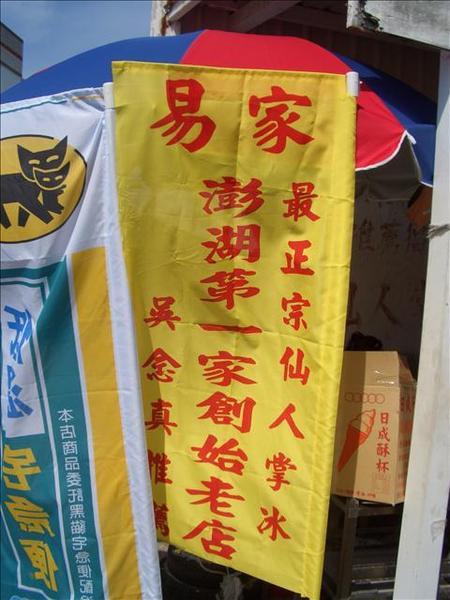 易家
最正宗仙人掌冰
澎湖第一家創始老店
吳念真推薦
宅急便
本店商品委託黑貓宅急便配
日成酥杯